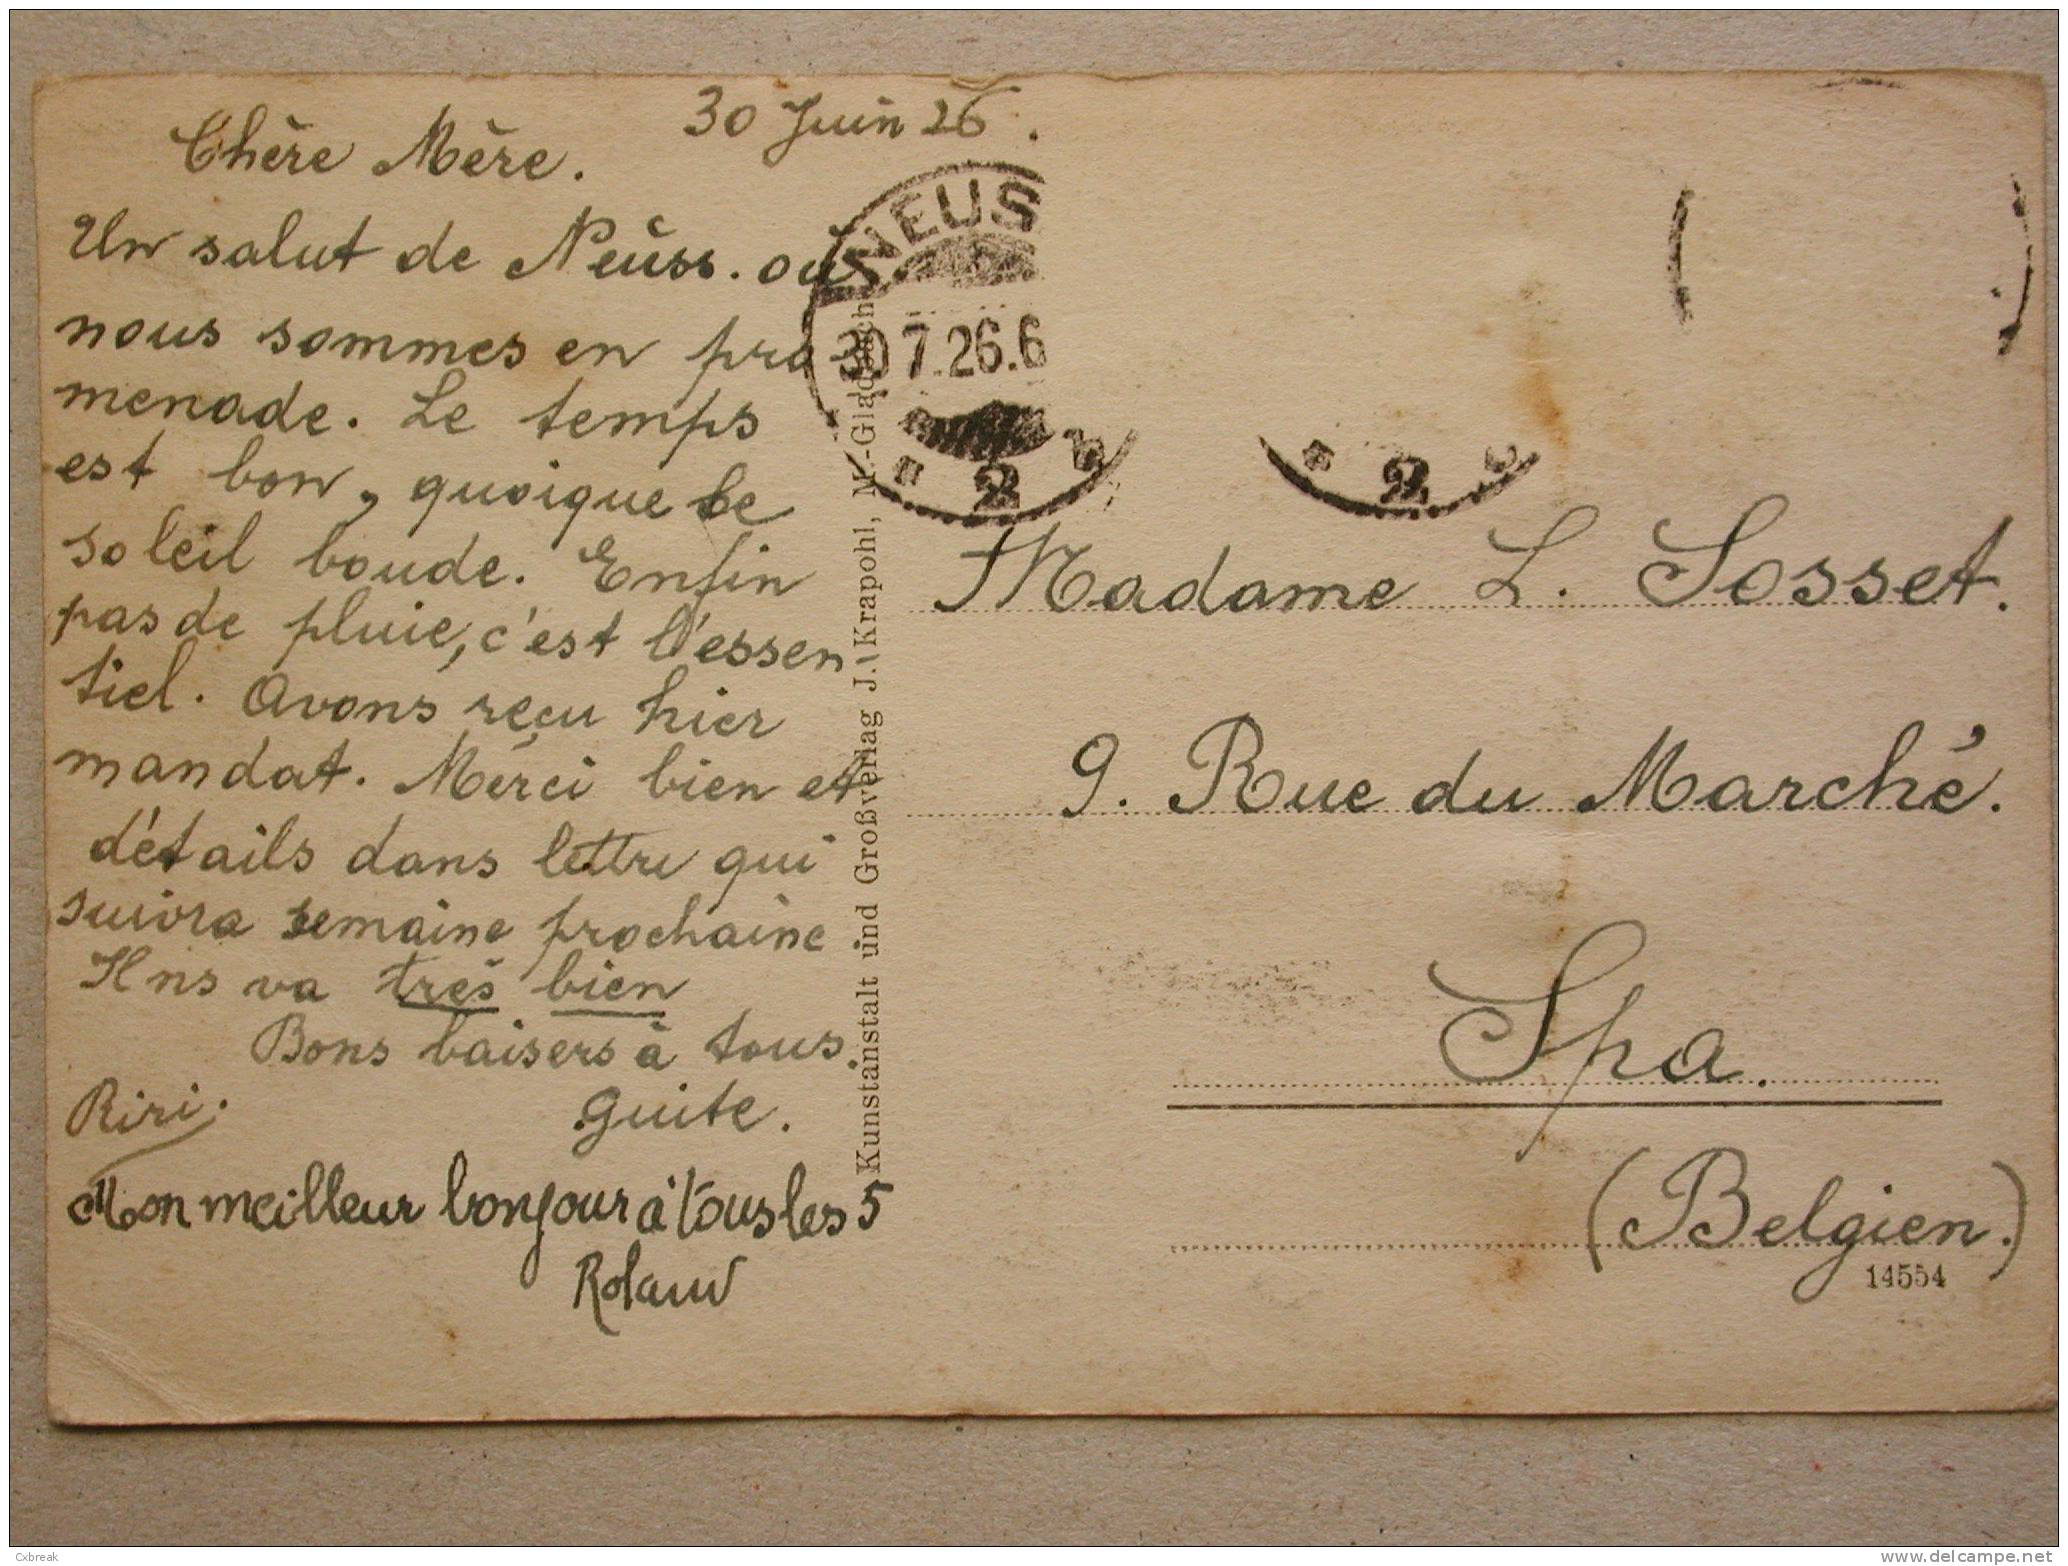 30 Juin 26.
Chère Mère.
Un salut de Neuss. où
nous sommes en pro-
menade. Le temps
est bon, quoique le
soleil boude. Enfin
pas de pluie, c'est l'essen-
tiel. Avons reçu hier
mandat. Merci bien et
détails dans lettre qui
suivra semaine prochaine
Il ns va très bien
Bons baisers à tous.
Riri. Guite.
Mon meilleur bonjour à tous les 5
Roland
NEUS
30 7.26.6
* 2 b
* 2
Kunstanstalt und Großverlag J. Krapohl, M.-Gladbach
Madame L. Sosset.
9. Rue du Marché.
Spa.
(Belgien.)
14554
Cxbreak
www.delcampe.net